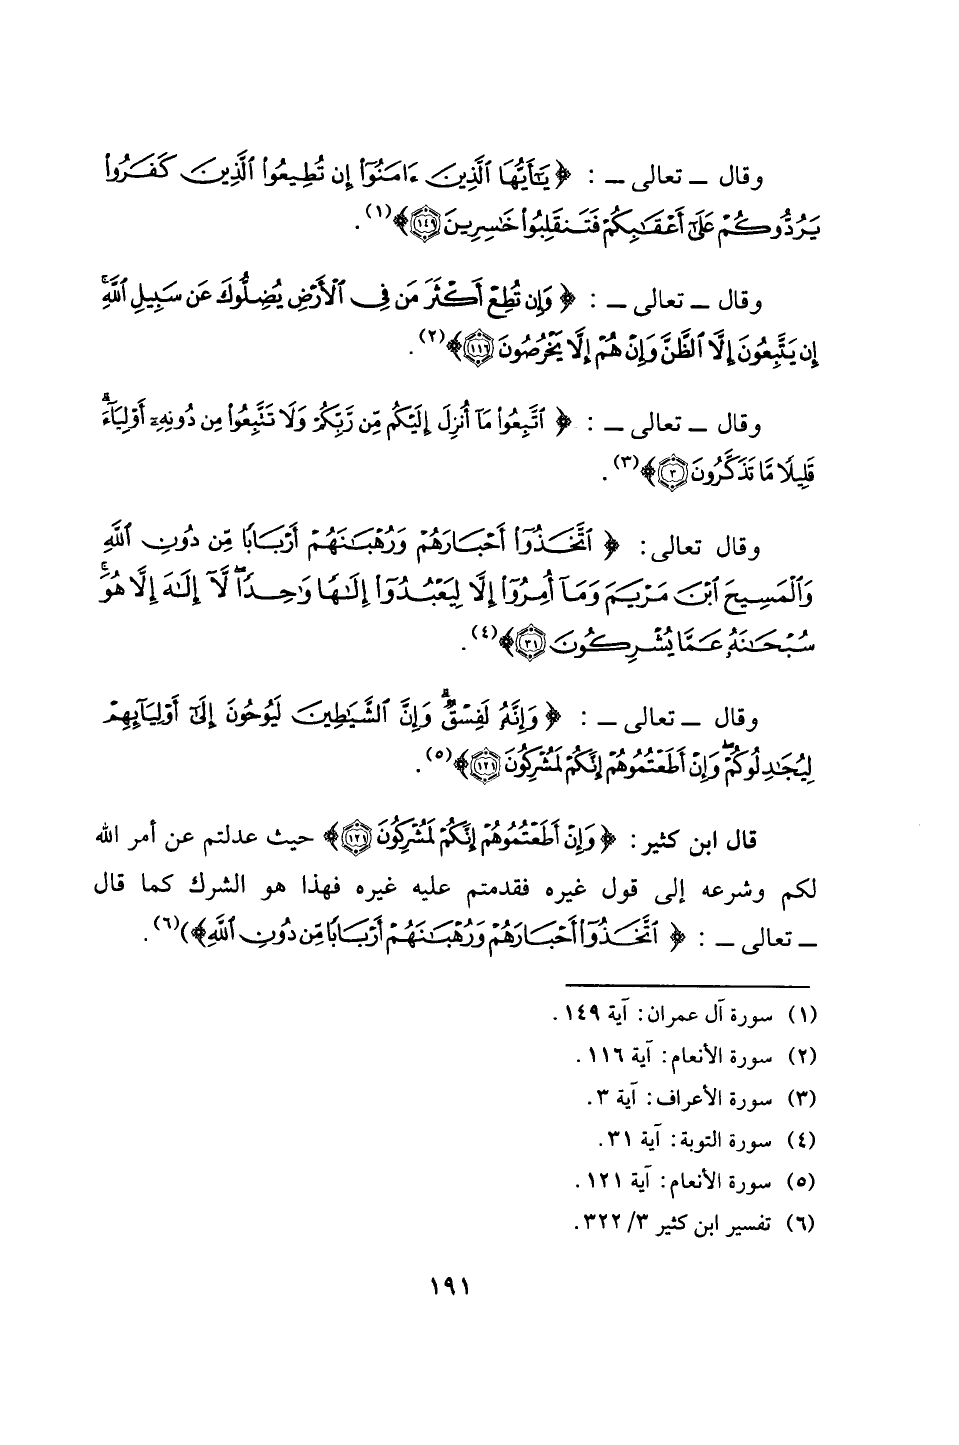 وقال ــ تعالى ــ : ﴿ يَٰٓأَيُّهَا ٱلَّذِينَ ءَامَنُوٓا۟ إِن تُطِيعُوا۟ ٱلَّذِينَ كَفَرُوا۟
يَرُدُّوكُمْ عَلَىٰٓ أَعْقَٰبِكُمْ فَتَنقَلِبُوا۟ خَٰسِرِينَ ١٤٩ ﴾(١) .
وقال ــ تعالى ــ : ﴿ وَإِن تُطِعْ أَكْثَرَ مَن فِى ٱلْأَرْضِ يُضِلُّوكَ عَن سَبِيلِ ٱللَّهِۚ
إِن يَتَّبِعُونَ إِلَّا ٱلظَّنَّ وَإِنْ هُمْ إِلَّا يَخْرُصُونَ ١١٦ ﴾(٢) .
وقال ــ تعالى ــ : ﴿ ٱتَّبِعُوا۟ مَآ أُنزِلَ إِلَيْكُم مِّن رَّبِّكُمْ وَلَا تَتَّبِعُوا۟ مِن دُونِهِۦٓ أَوْلِيَآءَۗ
قَلِيلًا مَّا تَذَكَّرُونَ ٣ ﴾(٣) .
وقال تعالى : ﴿ ٱتَّخَذُوٓا۟ أَحْبَارَهُمْ وَرُهْبَٰنَهُمْ أَرْبَابًا مِّن دُونِ ٱللَّهِ
وَٱلْمَسِيحَ ٱبْنَ مَرْيَمَ وَمَآ أُمِرُوٓا۟ إِلَّا لِيَعْبُدُوٓا۟ إِلَٰهًا وَٰحِدًاۖ لَّآ إِلَٰهَ إِلَّا هُوَۚ
سُبْحَٰنَهُۥ عَمَّا يُشْرِكُونَ ٣١ ﴾(٤) .
وقال ــ تعالى ــ : ﴿ وَإِنَّهُۥ لَفِسْقٌۗ وَإِنَّ ٱلشَّيَٰطِينَ لَيُوحُونَ إِلَىٰٓ أَوْلِيَآئِهِمْ
لِيُجَٰدِلُوكُمْۖ وَإِنْ أَطَعْتُمُوهُمْ إِنَّكُمْ لَمُشْرِكُونَ ١٢١ ﴾(٥) .
قال ابن كثير : ﴿ وَإِنْ أَطَعْتُمُوهُمْ إِنَّكُمْ لَمُشْرِكُونَ ١٢١ ﴾ حيث عدلتم عن أمر الله
لكم وشرعه إلى قول غيره فقدمتم عليه غيره فهذا هو الشرك كما قال
ــ تعالى ــ : ﴿ ٱتَّخَذُوٓا۟ أَحْبَارَهُمْ وَرُهْبَٰنَهُمْ أَرْبَابًا مِّن دُونِ ٱللَّهِ ﴾)(٦) .
(١) سورة آل عمران : آية ١٤٩ .
(٢) سورة الأنعام : آية ١١٦ .
(٣) سورة الأعراف : آية ٣ .
(٤) سورة التوبة : آية ٣١ .
(٥) سورة الأنعام : آية ١٢١ .
(٦) تفسير ابن كثير ٣/ ٣٢٢ .
١٩١